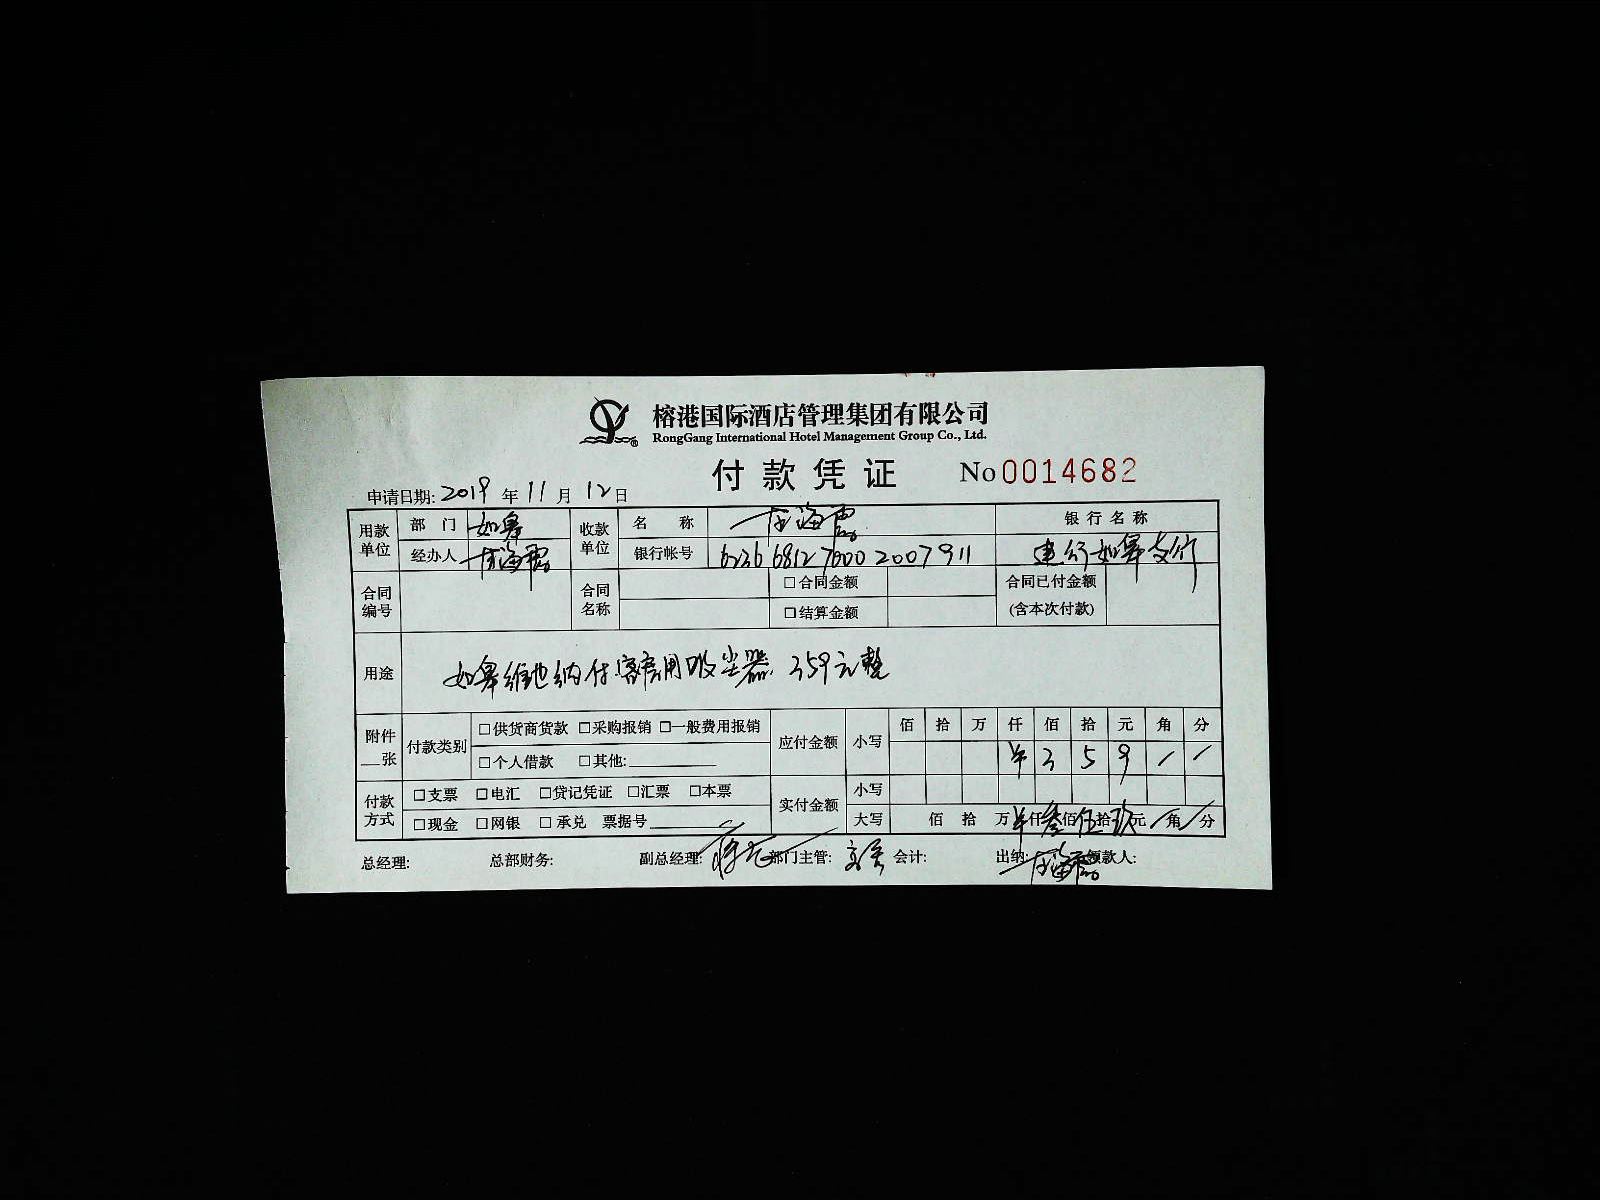 榕港国际酒店管理集团有限公司
RongGang International Hotel Management Group Co., Ltd.
付款凭证 No 0014682
申请日期: 2019 年 11 月 12 日
用款单位 部门 如皋 收款单位 名称 海霞 银行名称
经办人 海霞 银行帐号 6236 6812 7000 2007 911 建行如皋支行
合同编号 合同名称 □合同金额 合同已付金额
□结算金额 (含本次付款)
用途 如皋维也纳付客房用吸尘器 359元整
附件__张 付款类别 □供货商货款 □采购报销 □一般费用报销 应付金额 小写 佰 拾 万 仟 佰 拾 元 角 分
□个人借款 □其他: ¥ 3 5 9 / /
付款方式 □支票 □电汇 □贷记凭证 □汇票 □本票 实付金额 小写
□现金 □网银 □承兑 票据号 大写 佰 拾 万 ¥ 仟 叁 佰 伍 拾 玖 元 / 角 / 分
总经理: 总部财务: 副总经理: 部门主管: 会计: 出纳: 海霞 领款人: